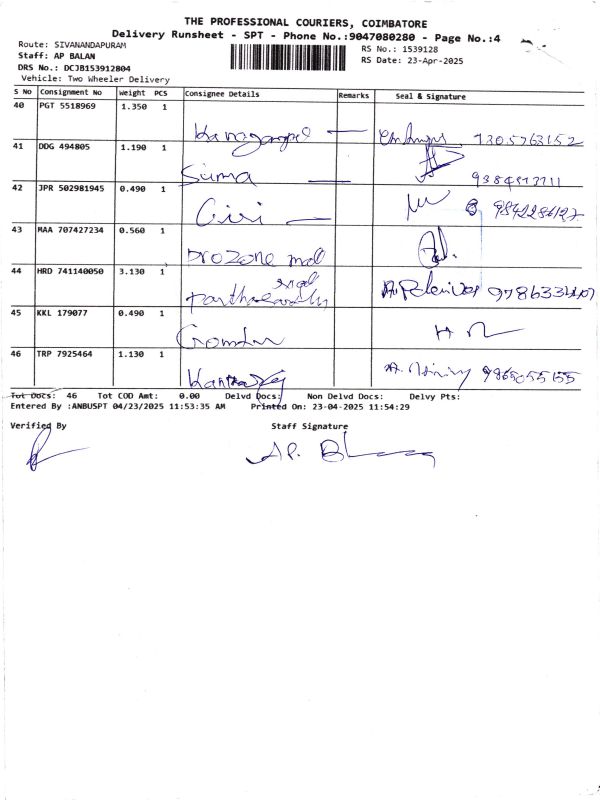 THE PROFESSIONAL COURIERS, COIMBATORE
Delivery Runsheet - SPT - Phone No.:9047080280 - Page No.:4
Route: SIVANANDAPURAM
RS No.: 1539128
Staff: AP BALAN
RS Date: 23-Apr-2025
DRS No.: DCJB153912804
Vehicle: Two Wheeler Delivery
S No Consignment No Weight PCS Consignee Details Remarks Seal & Signature
40 PGT 5518969 1.350 1
7305763152
41 DDG 494805 1.190 1
Suma
42 JPR 502981945 0.490 1
Giri
43 MAA 707427234 0.560 1
Prozone mall
44 HRD 741140050 3.130 1
45 KKL 179077 0.490 1
46 TRP 7925464 1.130 1
Tot Docs: 46 Tot COD Amt: 0.00 Delvd Docs: Non Delvd Docs: Delvy Pts:
Entered By :ANBUSPT 04/23/2025 11:53:35 AM Printed On: 23-04-2025 11:54:29
Verified By Staff Signature
AP.